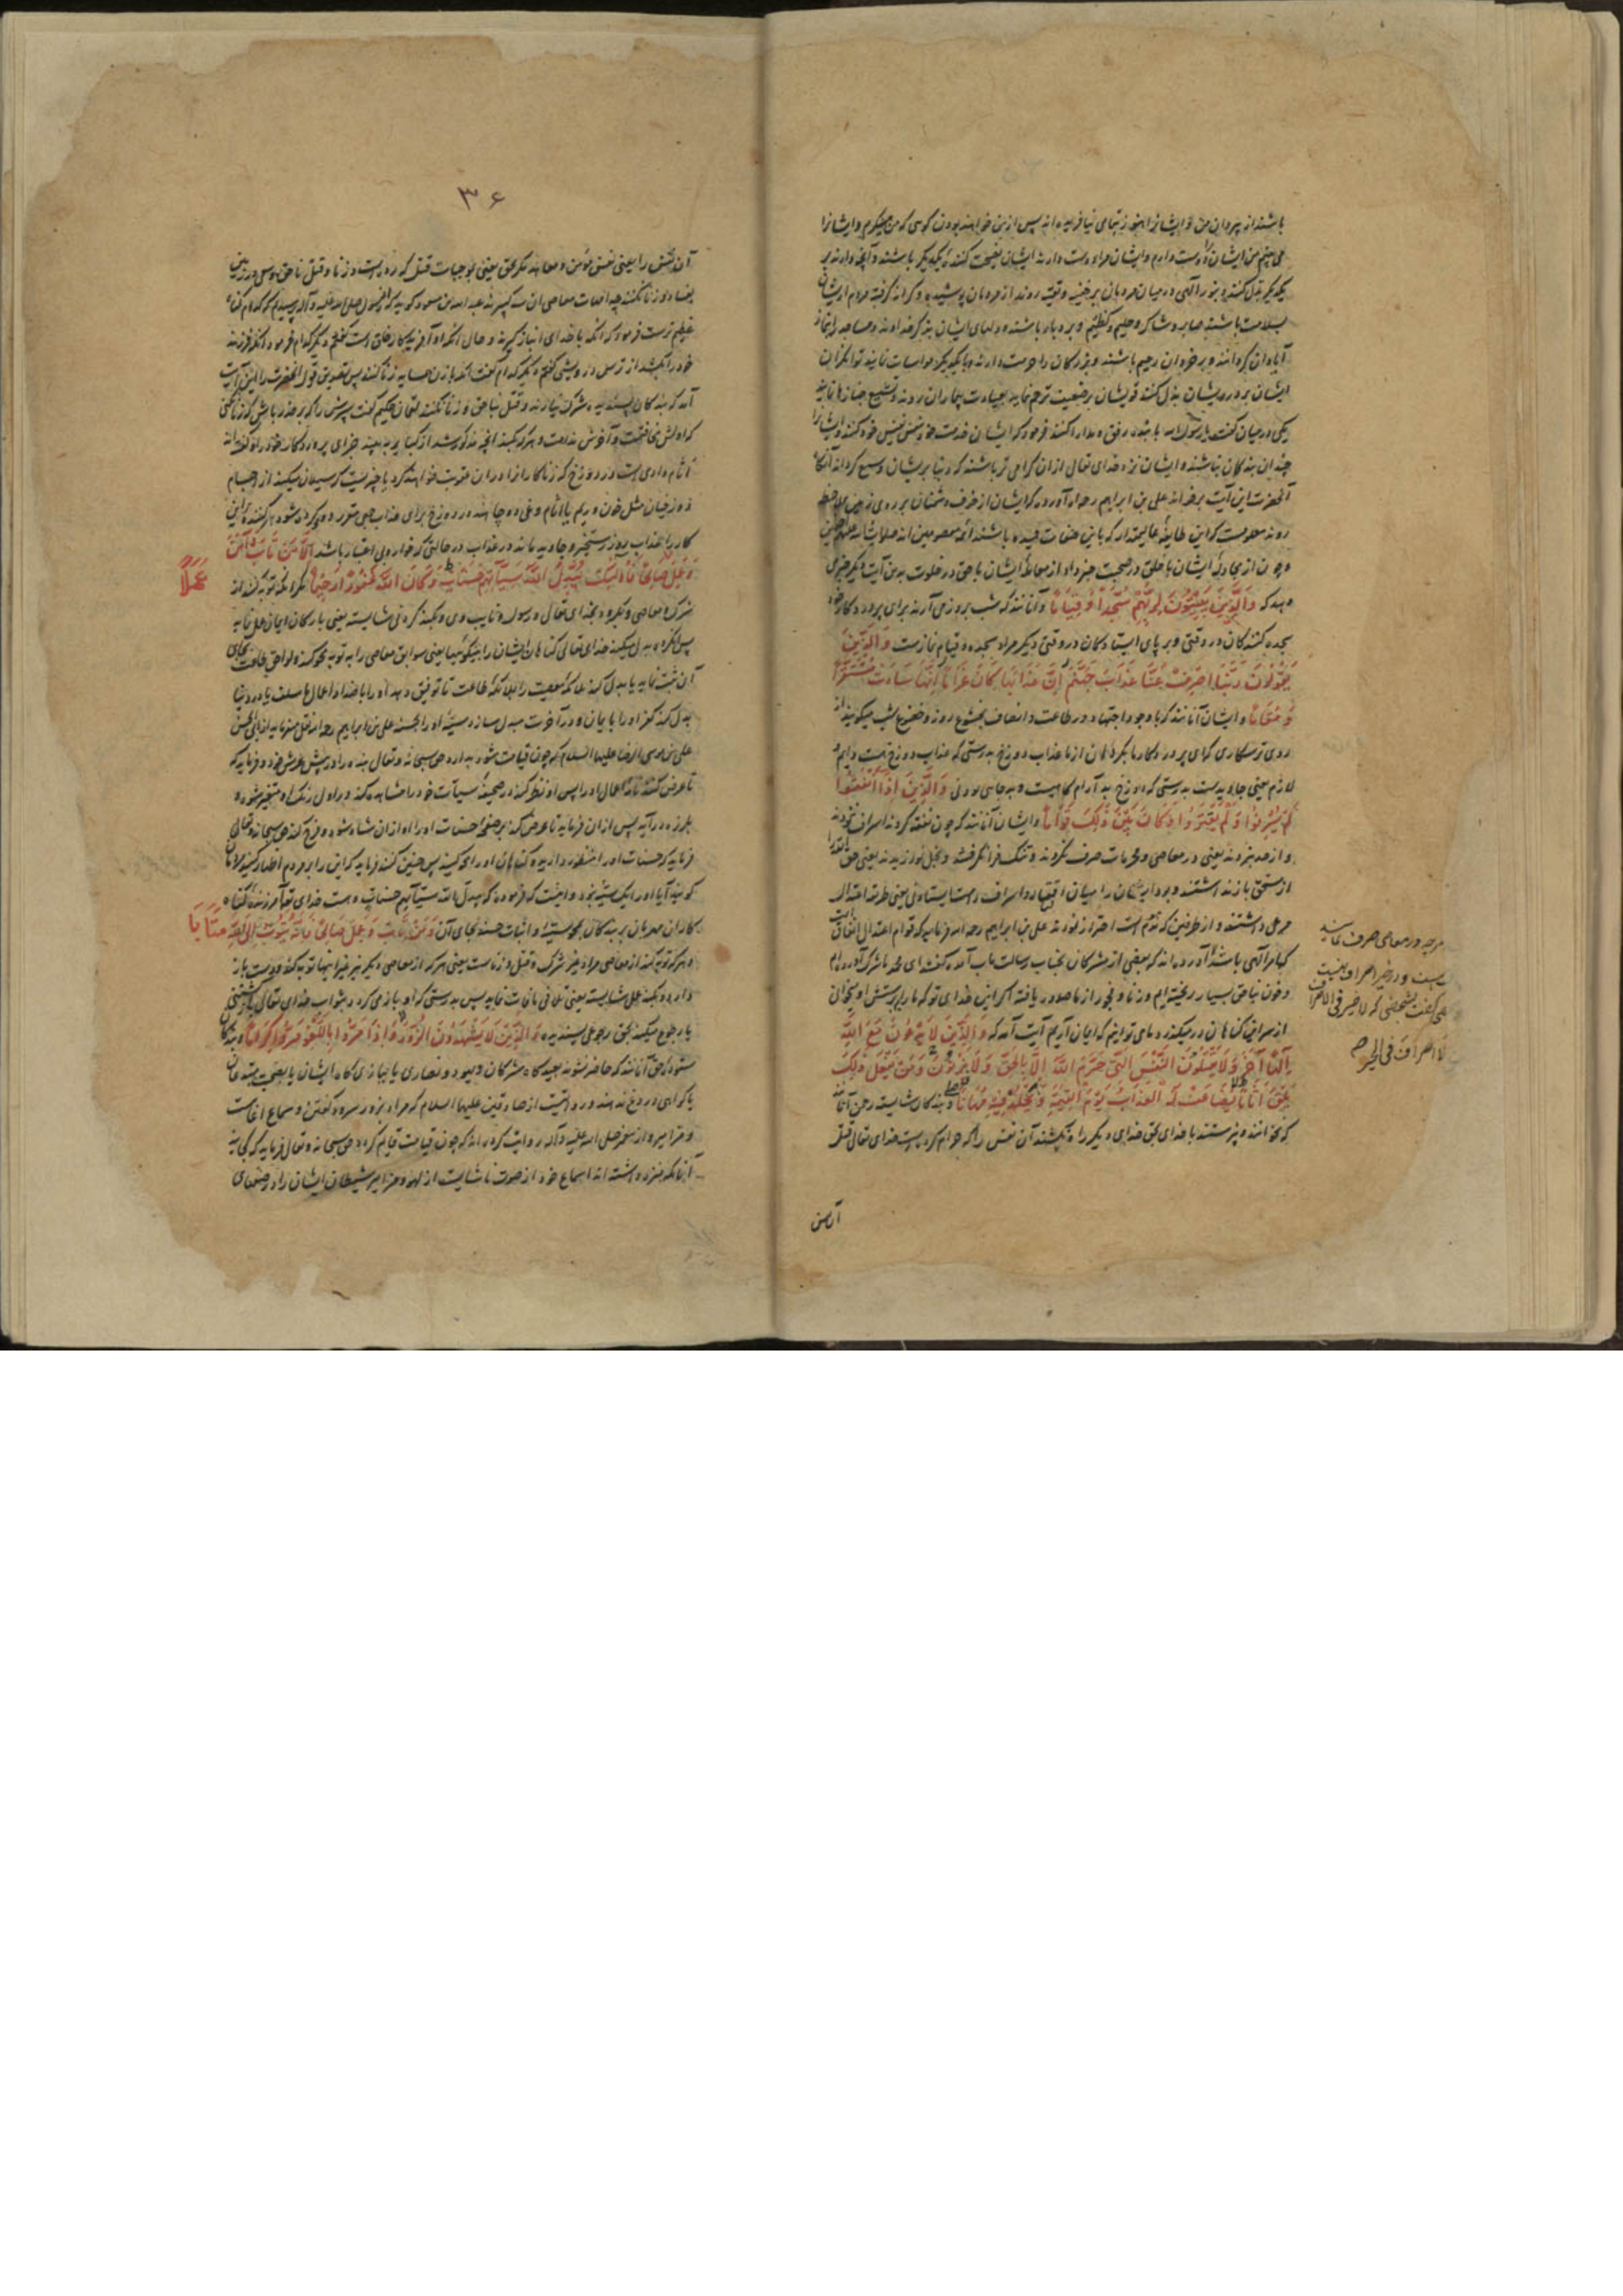 باشند از پیروان من و ایشانرا هنوز نیافریده‌اند پس ازین خواهند بودن کوسی که من میگریم و ایشانرا
می بینم من ایشان را دوست دارم و ایشان مرا دوست دارند ایشان نصیحت کننده یکدیگر باشند و آنچه دارند بر
یکدیگر بذل کنند و بنور الهی در میان مردمان بر خفیه و تقیه روند از مردمان پوشیده و کرانه گرفته مردم از ایشان
بسلامت باشند صابر و شاکر و حلیم و کظیم و بردبار باشند و دلهای ایشان بذکر خداوند و مساجد را بنماز
آبادان گردانند و بر خردان رحیم باشند و بزرکان را حرمت دارند و با یکدیگر مواسات نمایند توانگران
ایشان بر درویشان بذل کنند قویشان بر ضعیف ترحم نماید بعیادت بیماران روند و تشییع جنازها نمایند
یکی در میان گفت یا رسول الله باشد رفق و مدارا کنند فرمود که ایشان خدمت خود بنفس نفیس خود کنند و ایشانرا
چندان بندکان نباشند و ایشان نزد خدای تعالی از ان گرامی تر باشند که دنیا بر ایشان وسیع گرداند آنگاه
آنحضرت این آیت برخواند علی بن ابراهیم رحمه الله آورده که ایشان از خوف دشمنان بر روی زمین
روند معلومست که این طایفه عالیمقدار که باین صفات حمیده باشند ائمه معصومین اند صلوات الله علیهم اجمعین
و چون از مجادله ایشان با خلق در صحبت خبر داد از معامله ایشان با حق در خلوت بدین آیت دیگر خبر می
دهد که وَالَّذِينَ يَبِيتُونَ لِرَبِّهِمْ سُجَّدًا وَقِيَامًا و آنانند که شب بروز می آرند برای پروردگار خود
سجده کنندگان در وقتی و بر پای ایستادگان در وقتی دیگر مراد سجده و قیام نمازست وَالَّذِينَ
يَقُولُونَ رَبَّنَا اصْرِفْ عَنَّا عَذَابَ جَهَنَّمَ إِنَّ عَذَابَهَا كَانَ غَرَامًا إِنَّهَا سَاءَتْ مُسْتَقَرًّا
وَمُقَامًا و ایشان آنانند که با وجود اجتهاد در طاعت و اتصاف بخشوع روز و خضوع شب میگویند از
روی ترسکاری که ای پروردکار ما بگردان از ما عذاب دوزخ بدرستی که عذاب دوزخ هست دایم و
لازم یعنی جاوید ست بدرستی که دوزخ بد آرام گاهیست و بد جای بودنی وَالَّذِينَ إِذَا أَنْفَقُوا
لَمْ يُسْرِفُوا وَلَمْ يَقْتُرُوا وَكَانَ بَيْنَ ذَلِكَ قَوَامًا و ایشان آنانند که چون نفقه کردند اسراف نکردند
و از حد نبردند یعنی در معاصی و محرمات صرف نکردند و تنک فرا نگرفتند و بخل نورزیدند یعنی حق
از مستحق باز نداشتند و بود ایشان را میان اقتار و اسراف راستا یستادنی یعنی طریقه اعتدال
مرعی داشتند و از طرفین که ذم است احتراز نمودند علی بن ابراهیم رحمه الله فرماید که قوام اعتدال انفاق
کما مر الهی باشد آورده اند که بعضی از مشرکان بجناب رسالت مآب آمده گفتند ای محمد ما شرک آورده ایم
و خون ناحق بسیار ریخته ایم و زنا و فجور از ما صدور یافته اگر این خدای تو که ما را بپرستش او میخوانی
از سر این گناهان در میگذرد ما می توانیم که ایمان آریم آیت آمد که وَالَّذِينَ لَا يَدْعُونَ مَعَ اللَّهِ
إِلَهًا آخَرَ وَلَا يَقْتُلُونَ النَّفْسَ الَّتِي حَرَّمَ اللَّهُ إِلَّا بِالْحَقِّ وَلَا يَزْنُونَ وَمَنْ يَفْعَلْ ذَلِكَ
يَلْقَ أَثَامًا يُضَاعَفْ لَهُ الْعَذَابُ يَوْمَ الْقِيَمَةِ وَيَخْلُدْ فِيهِ مُهَانًا و بندگان شایسته رحمن آنانند
که نخوانند و نپرستند با خدای بحق خدای دیگر را و نکشند آن نفس را که حرام کرده است خدای تعالی قتل
هرچه در معاصی صرف نمایند
ست و در خیر اسراف نیست
گفت شخصی که لا خیر فی الاسراف
لا اسراف فی الخیر
آن نفس
۳۶
آن نفس را یعنی نفس مؤمن و معاهد مگر بحق یعنی بموجبات قتل که رده است و زنا و قتل ناحق و سعی در زمین
بفساد و زنا نکنند چه امهات معاصی این سه کبیره‌اند عبد الله بن مسعود گوید که از رسول صلی الله علیه و آله پرسیدم که کدام گناه
عظیم ترست فرمود که آنکه با خدای انباز گیرند و حال آنکه او آفریدگار خلق است گفتم دیگر کدام فرمود آنکه فرزند
خود را بکشد از ترس درویشی گفتم دیگر کدام گفت آنکه با زن همسایه زنا کنند پس تصدیق قول آنحضرت را این آیت
آمد که بندکان پسندیده شرک نیارند و قتل بناحق و زنا نکنند لقمان حکیم گفت پسرش را که بر حذر باش که زنا نکنی
که اولش مخافتست و آخرش ندامت و هر که بکند آنچه مذکور شد از کبایر به بیند جزای بزه
اثام وادی است در دوزخ که زناکارانرا در ان عقوبت خواهند کرد یا چیزیست که سیلان میکند از اجسام
دوزخیان مثل خون و ریم یا اثام و غی دو چاه اند در دوزخ برای عذاب مقرر و دو چندان شود مر کننده این
کار را عذاب روز رستخیز و جاوید ماند در عذاب در حالتی که خوار و بی اعتبار باشد إِلَّا مَنْ تَابَ وَآمَنَ
وَعَمِلَ عَمَلًا صَالِحًا فَأُولَئِكَ يُبَدِّلُ اللَّهُ سَيِّآتِهِمْ حَسَنَاتٍ وَكَانَ اللَّهُ غَفُورًا رَحِيمًا مگر آنکه توبه کند از
شرک و معاصی و بگرود بخدای تعالی و رسول و نایب وی و بکند کردنی شایسته یعنی بارکان ایمان عمل نماید
پس آن گروه بدل میکند خدای تعالی گناهان ایشان را بنیکوئیها یعنی سوابق معاصی را بتوبه محو کند و لواحق طاعت بجای
آن ثبت نماید یا بدل کند ملکه معصیت را بملکه طاعت تا توفیق دهد او را باضداد اعمال ما سلف یا در دنیا
بدل کند کفر او را بایمان و در آخرت مبدل سازد سیئه او را بحسنه علی بن ابراهیم رحمه الله نقل میفرماید از ابی الحسن
علی بن موسی الرضا علیهما السلام که چون قیامت شود بدارد حق سبحانه و تعالی بنده را در پیش عرش خود و فرماید که
تا عرض کنند نامه اعمال او را پس او نظر کند در صحیفه سیآت خود را مشاهده کند و در اول رنک او متغیر شود و
بلرزه درآید پس از ان فرماید تا عرض کنند بر صحیفه حسنات او را او از ان شاد شود و فرح کند حق سبحانه و تعالی
فرماید که حسنات او را منظور دارید و گناهان او را محو کنید پس چنین کنند فرماید که این را بر مردم اظهار کنید مردمان
گویند آیا او را یک سیئه نبود و اینست که فرموده که یبدل الله سیآتهم حسنات و هست خدای تعالی آمرزنده گناه
کاران مهربان بر بندگان بمحو سیئه و اثبات حسنه بجای آن وَمَنْ تَابَ وَعَمِلَ صَالِحًا فَإِنَّهُ يَتُوبُ إِلَى اللَّهِ مَتَابًا
و هر که توبه کند از معاصی مراد بغیر شرک و قتل و زناست یعنی هر که از معاصی دیگر نیز غیر اینها توبه کند و دست باز
دارد و بکند عمل شایسته یعنی تلافی مافات نماید پس بدرستی که او باز می گردد بثواب خدای تعالی بازگشتنی
یا رجوع میکند بحق رجوعی پسندیده وَالَّذِينَ لَا يَشْهَدُونَ الزُّورَ وَإِذَا مَرُّوا بِاللَّغْوِ مَرُّوا كِرَامًا و بندگان
ستوده حق آنانند که حاضر نشوند بعیدگاه مشرکان و یهود و نصاری یا ببازیگاه ایشان یا بصحبت مبتدعان
یا گواهی دروغ ندهند و روایتیست از صادقین علیهما السلام که مراد بزور سرود گفتن و سماع اغانیست
و مزامیر و از پیغمبر صلی الله علیه و آله روایت کرده اند که چون قیامت قایم گردد حق سبحانه و تعالی فرماید که کجایند
آنانکه منزه داشته اند اسماع خود از صوت ناشایست از لهو و مزامیر شیطان ایشان را در